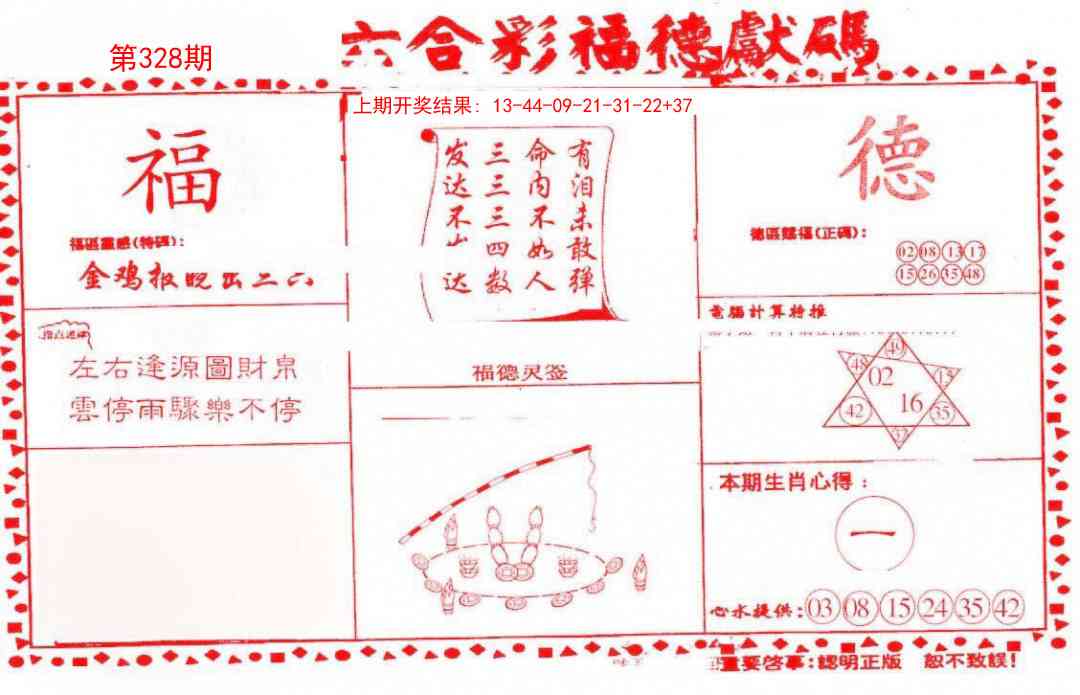 六合彩福德獻碼
第328期
上期开奖结果: 13-44-09-21-31-22+37
福
福區靈感(特碼):
金鸡报晓出二六
左右逢源圖財帛
雲停雨驟樂不停
有泪未敢弹
命内不如人
三三三四数
发达不 达
福德灵签
德
德區賜福(正碼):
02 08 13 17
15 26 35 48
電腦計算特推
49
48
02
15
42
16
35
37
本期生肖心得:
一
心水提供: 03 08 15 24 35 42
重要啓事:認明正版 恕不致誤!